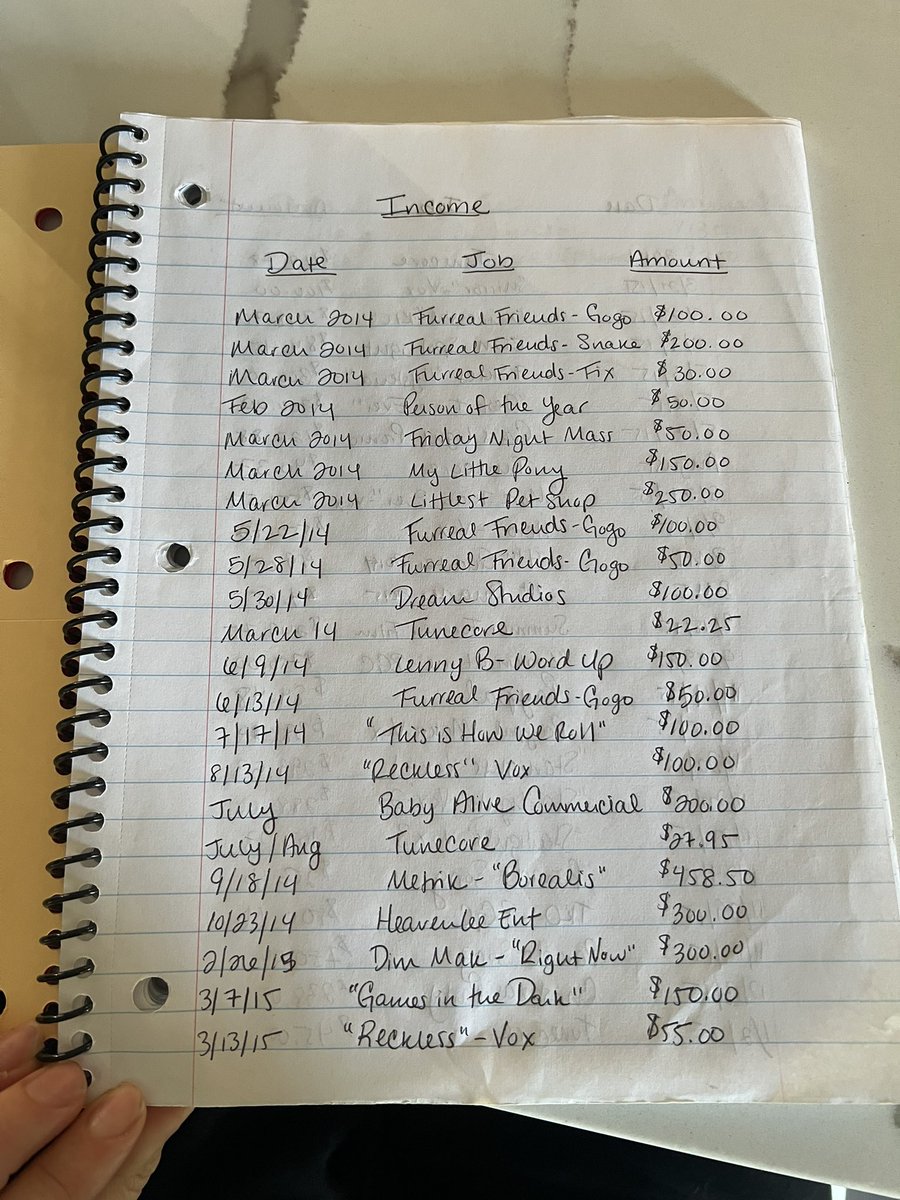 Income
Date Job Amount
March 2014 Furreal Friends - Gogo $100.00
March 2014 Furreal Friends - Snake $200.00
March 2014 Furreal Friends - Fix $30.00
Feb 2014 Person of the Year $50.00
March 2014 Friday Night Mass $50.00
March 2014 My Little Pony $150.00
March 2014 Littlest Pet Shop $250.00
5/22/14 Furreal Friends - Gogo $100.00
5/28/14 Furreal Friends - Gogo $50.00
5/30/14 Dream Studios $100.00
March 14 Tunecore $22.25
6/9/14 Lenny B - Word Up $150.00
6/13/14 Furreal Friends - Gogo $50.00
7/17/14 "This is How We Roll" $100.00
8/13/14 "Reckless" Vox $100.00
July Baby Alive Commercial $200.00
July/Aug Tunecore $27.95
9/18/14 Metrik - "Borealis" $458.50
10/23/14 Heavenlee Ent $300.00
2/26/15 Dim Mak - "Right Now" $300.00
3/7/15 "Games in the Dark" $150.00
3/13/15 "Reckless" - Vox $55.00